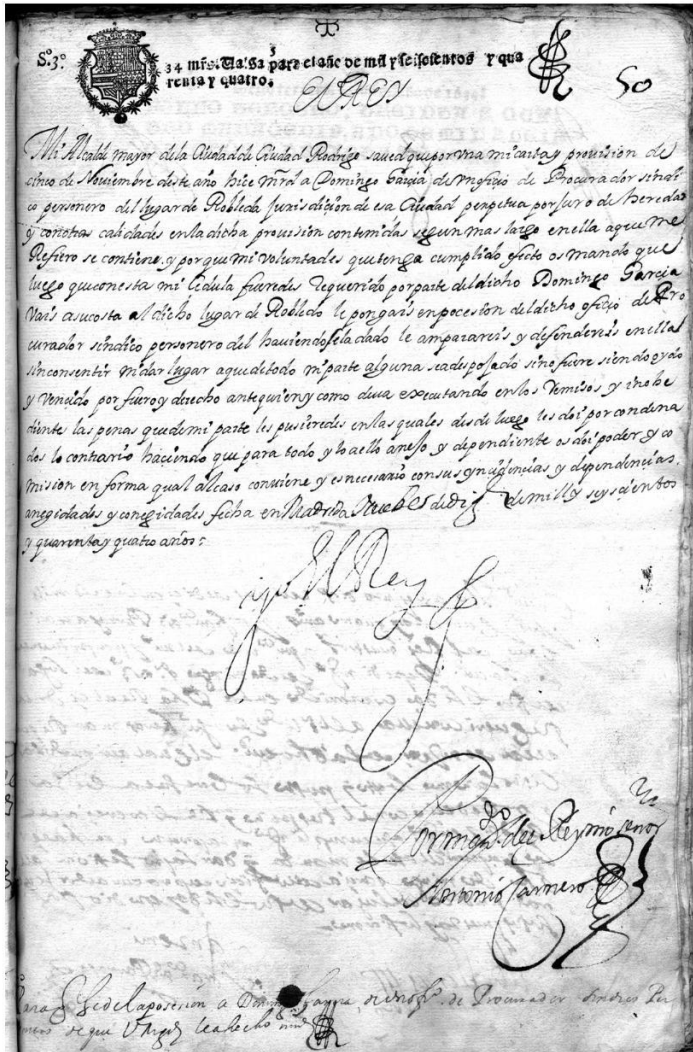 S.º 3.º
34 mrs. Valga para el año de mil y seiscientos y qua
renta y quatro.
50
El REY
Mi Alcalde mayor de la Ciudad de Ciudad Rodrigo saved que por una mi carta y provision de
cinco de Noviembre deste año hice mrd a Domingo Garçia de un oficio de Procurador sindi
co personero del lugar de Robleda Jurisdicion de esa Ciudad perpetua por juro de heredad
y con otras calidades en la dicha provision contenidas segun mas largo en ella aque me
Refiero se contiene, y porque mi voluntad es que tenga cumplido efecto os mando que
luego que con esta mi Cedula fueredes Requerido por parte del dicho Domingo Garcia
Vais a su costa al dicho lugar de Robledo le pongais en posesion del dicho ofiçio de Pro
curador sindico personero del haviendosela dado le amparareis y defendereis en ella
sin consentir ni dar lugar a que de todo ni parte alguna sea desposado sino fuere siendo oydo
y Vencido por fuero y derecho ante quien y como deva executando en los Remisos y inobe
diente las penas que de mi parte les pusieredes en las quales desde luego les doi por condena
dos lo contrario haciendo que para todo y lo a ello anejo, y dependiente os doi poder, y co
mision en forma qual al caso conviene y es necesario con sus yncidencias y dependencias,
anegidades y conegidades fecha en Madrid a Nuebe de Diz.e de mill y seyscientos
y quarenta y quatro años:
yo El Rey
Por mando del Rey nro señor
Antonio Carnero
la posesion a Domingo Garçia, de un of.º de Procurador sindico Per
nero de que V Mgd. le a hecho mrd